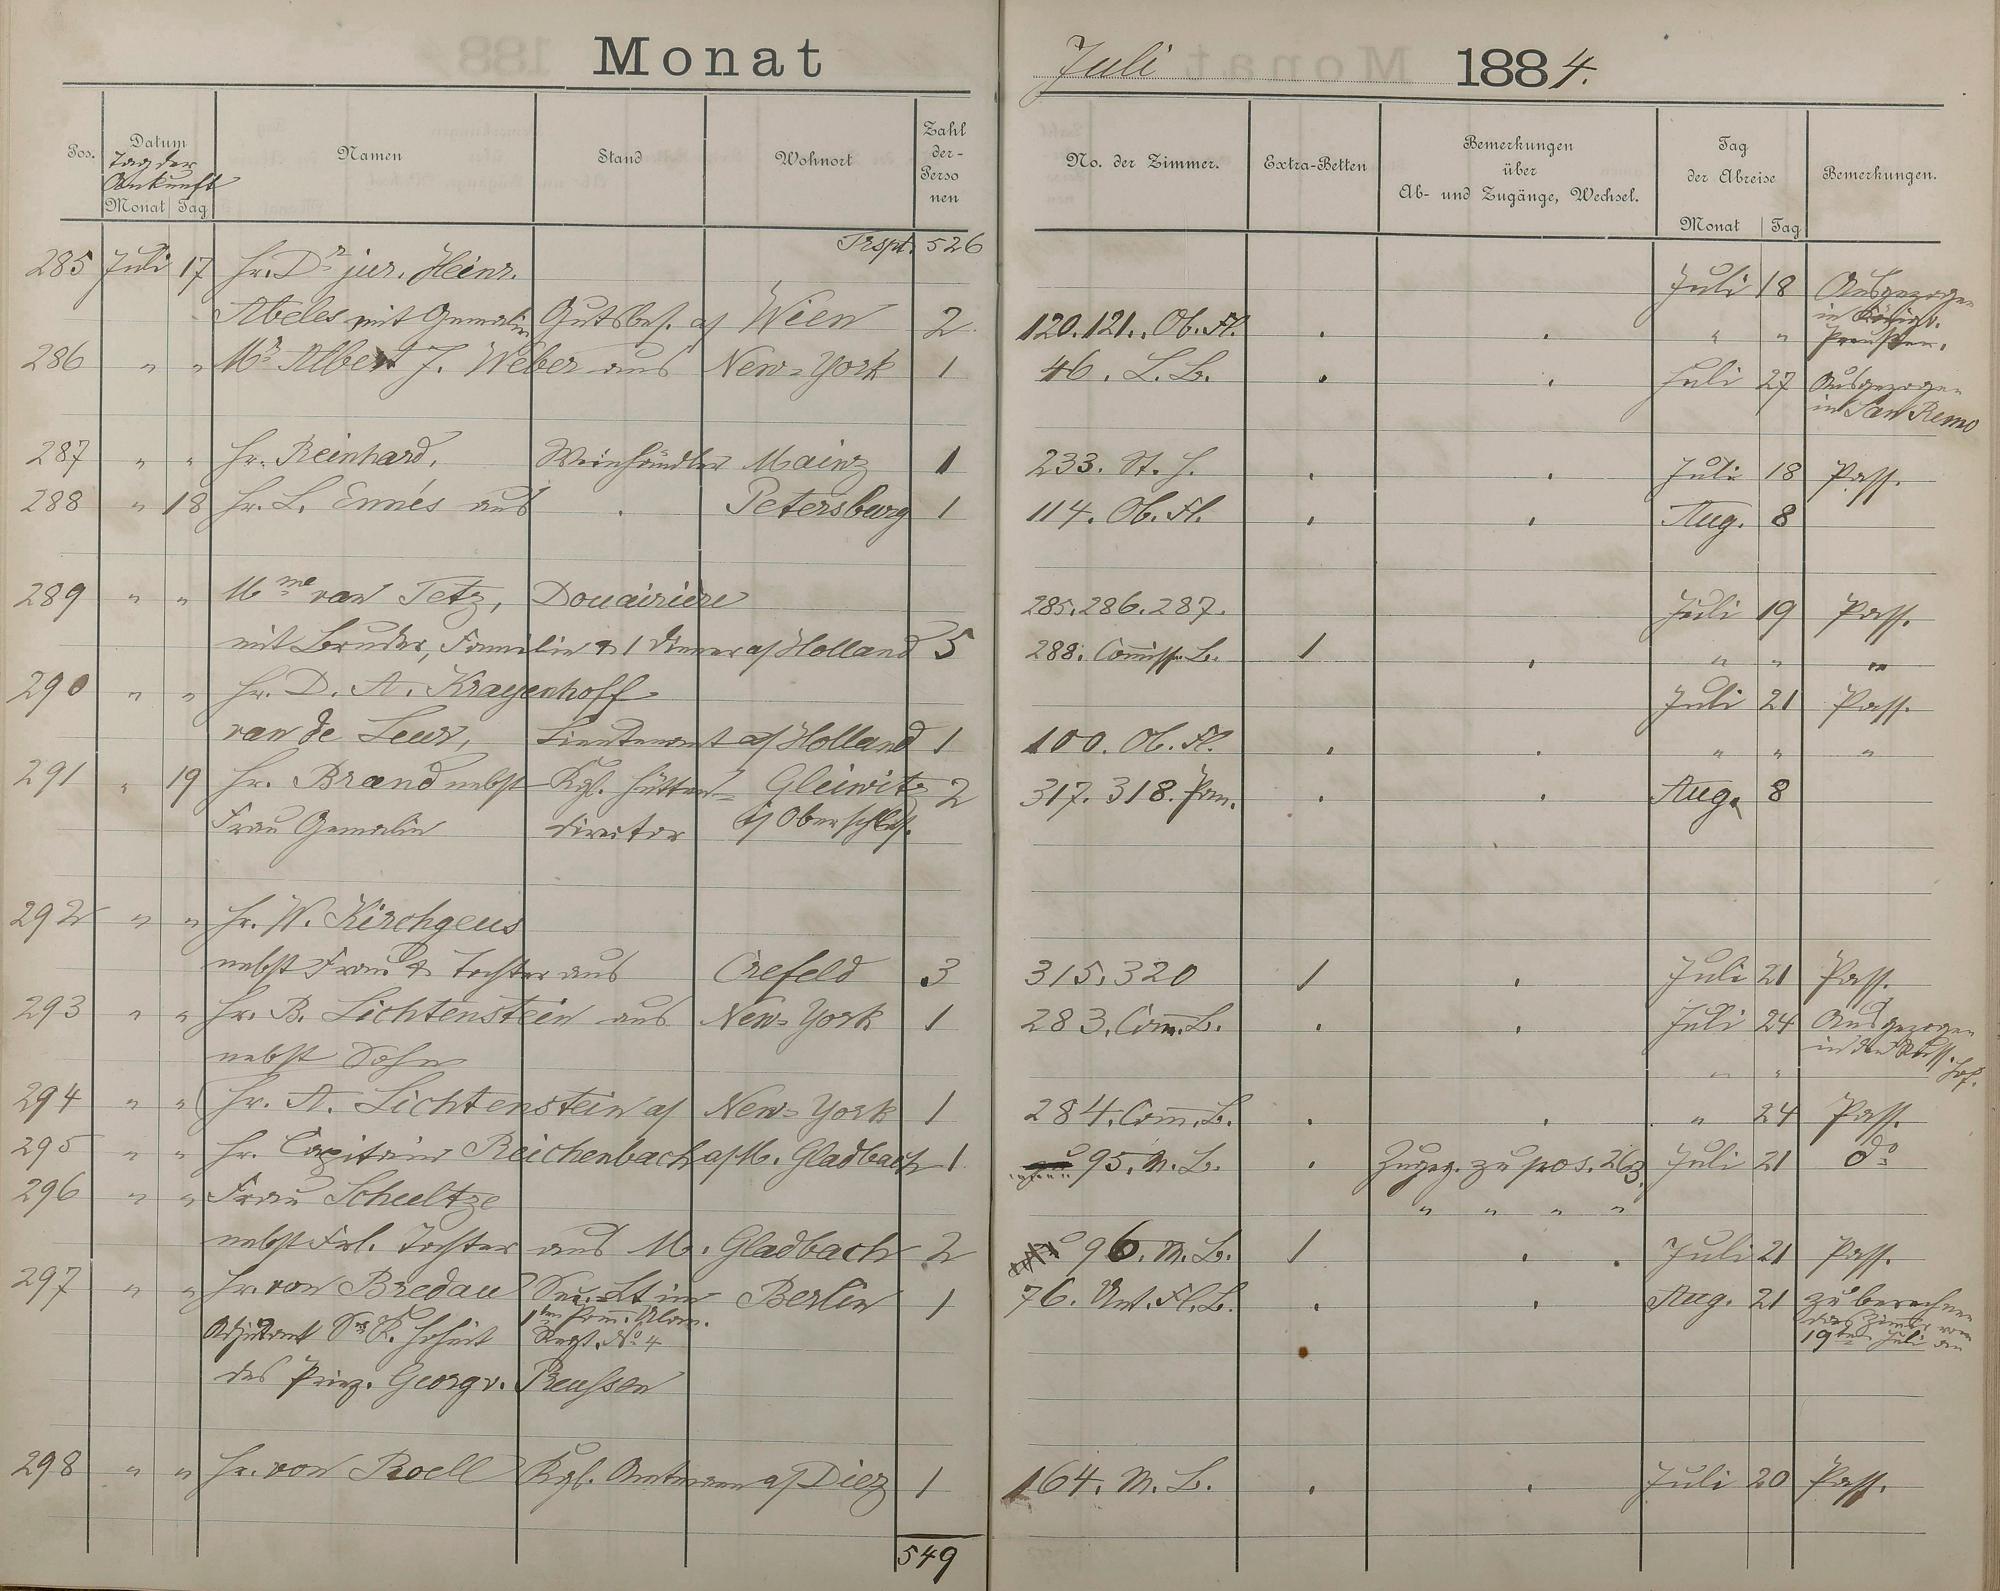 Monat
Juli 1884.
Pos. Datum Namen Stand Wohnort Zahl der Perso nen No. der Zimmer. Extra-Betten Bemerkungen über Ab- und Zugänge, Wechsel. Tag der Abreise Bemerkungen.
Tag der
Ankunft
Monat Tag Monat Tag
Trspt. 526
285 Juli 17 Hr. Dr jur. Heinr. Juli 18 Ausgezogen
Abeles mit Gemalin Gutsbes. a/ Wien 2 120. 121. Ob. Fl. " " in Königl. Preußen.
286 " " Mr. Albert J. Weber aus New-York 1 46. L. B. Juli 27 Ausgezogen
in San Remo
287 " " Hr. Reinhard, Weinhändler Mainz 1 233. St. H. Juli 18 Pass.
288 " 18 Hr. L. Ennés aus Petersburg 1 114. Ob. Fl. Aug. 8
289 " " Mme van Tetz, Douairière 285. 286. 287. Juli 19 Pass.
mit Bruder, Familie & 1 Diener a/ Holland 5 288. Commiss. B. 1 " " "
290 " " Hr. D. A. Krayenhoff Juli 21 Pass.
van de Leur, Lieutenant a/ Holland 1 100. Ob. Fl. " " "
291 " 19 Hr. Brand nebst Kgl. Hütten- Gleiwitz 2 317. 318. Pan. Aug. 8
Frau Gemalin director i/ Oberschles.
292 " " Hr. W. Kirchgeus
nebst Frau & Tochter aus Crefeld 3 315. 320 1 Juli 21 Pass.
293 " " Hr. B. Lichtenstein aus New-York 1 283. Com. B. Juli 24 Ausgezogen
nebst Sohn " " in den Russ. Hof.
294 " " Hr. A. Lichtenstein a/ New-York 1 284. Com. B. " 24 Pass.
295 " " Hr. Capitain Reichenbach a/ M. Gladbach 1 95. M. B. Zugeg. zu pos. 263. Juli 21 do
296 " " Frau Scheeltze " " " "
nebst Frl. Tochter aus M. Gladbach 2 96. M. B. 1 Juli 21 Pass.
297 " " Hr. von Bredau Sec. Lt im Berlin 1 76. Unt. Fl. B. Aug. 21 zu berechnen
Adjutant Sr K. Hoheit 1ten Pom. Ulan. Regt. No 4 das Zimmer vom
19ten Juli an
des Prinz. Georg v. Preussen
298 " " Hr. von Roell Kgl. Amtmann a/ Diez 1 164. M. B. Juli 20 Pass.
549